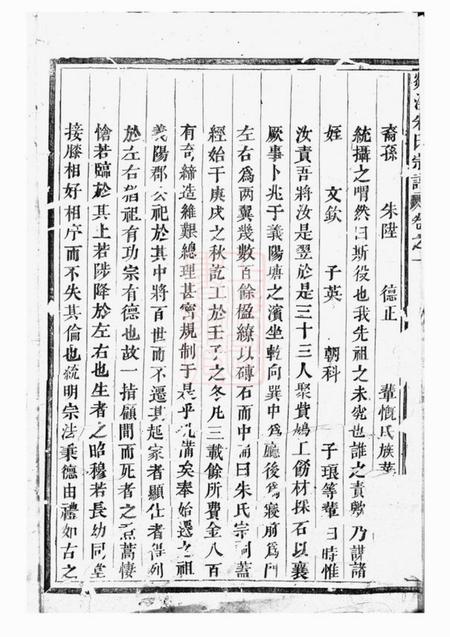 朱氏宗譜 卷之一
裔孫 朱陞 德正 輩慨氏族華
統攝之喟然曰斯役也我先祖之未究也誰之責歟乃諆諸
姪 文欽 子英 朝科 子琅等輩曰時惟
汝責吾將汝是翌於是三十三人聚貲鳩工飭材採石以襄
厥事卜兆于義陽唐之濱坐乾向巽中為廳後為寢前為門
左右為兩翼幾數百餘楹繚以磚石而中顏曰朱氏宗祠蓋
經始于庚戌之秋訖工於壬子之冬凡三載餘所費金八百
有奇締造維艱總理甚密規制于是乎孔備矣奉始遷之祖
義陽郡公祀於其中將百世而不遷其起家者顯仕者得列
於左右猶祖有功宗有德也故一指顧間而死者之焄蒿悽
愴若臨於其上若陟降於左右也生者之昭穆若長幼同堂
接膝相好相序而不失其倫也統明宗法秉德由禮如古之